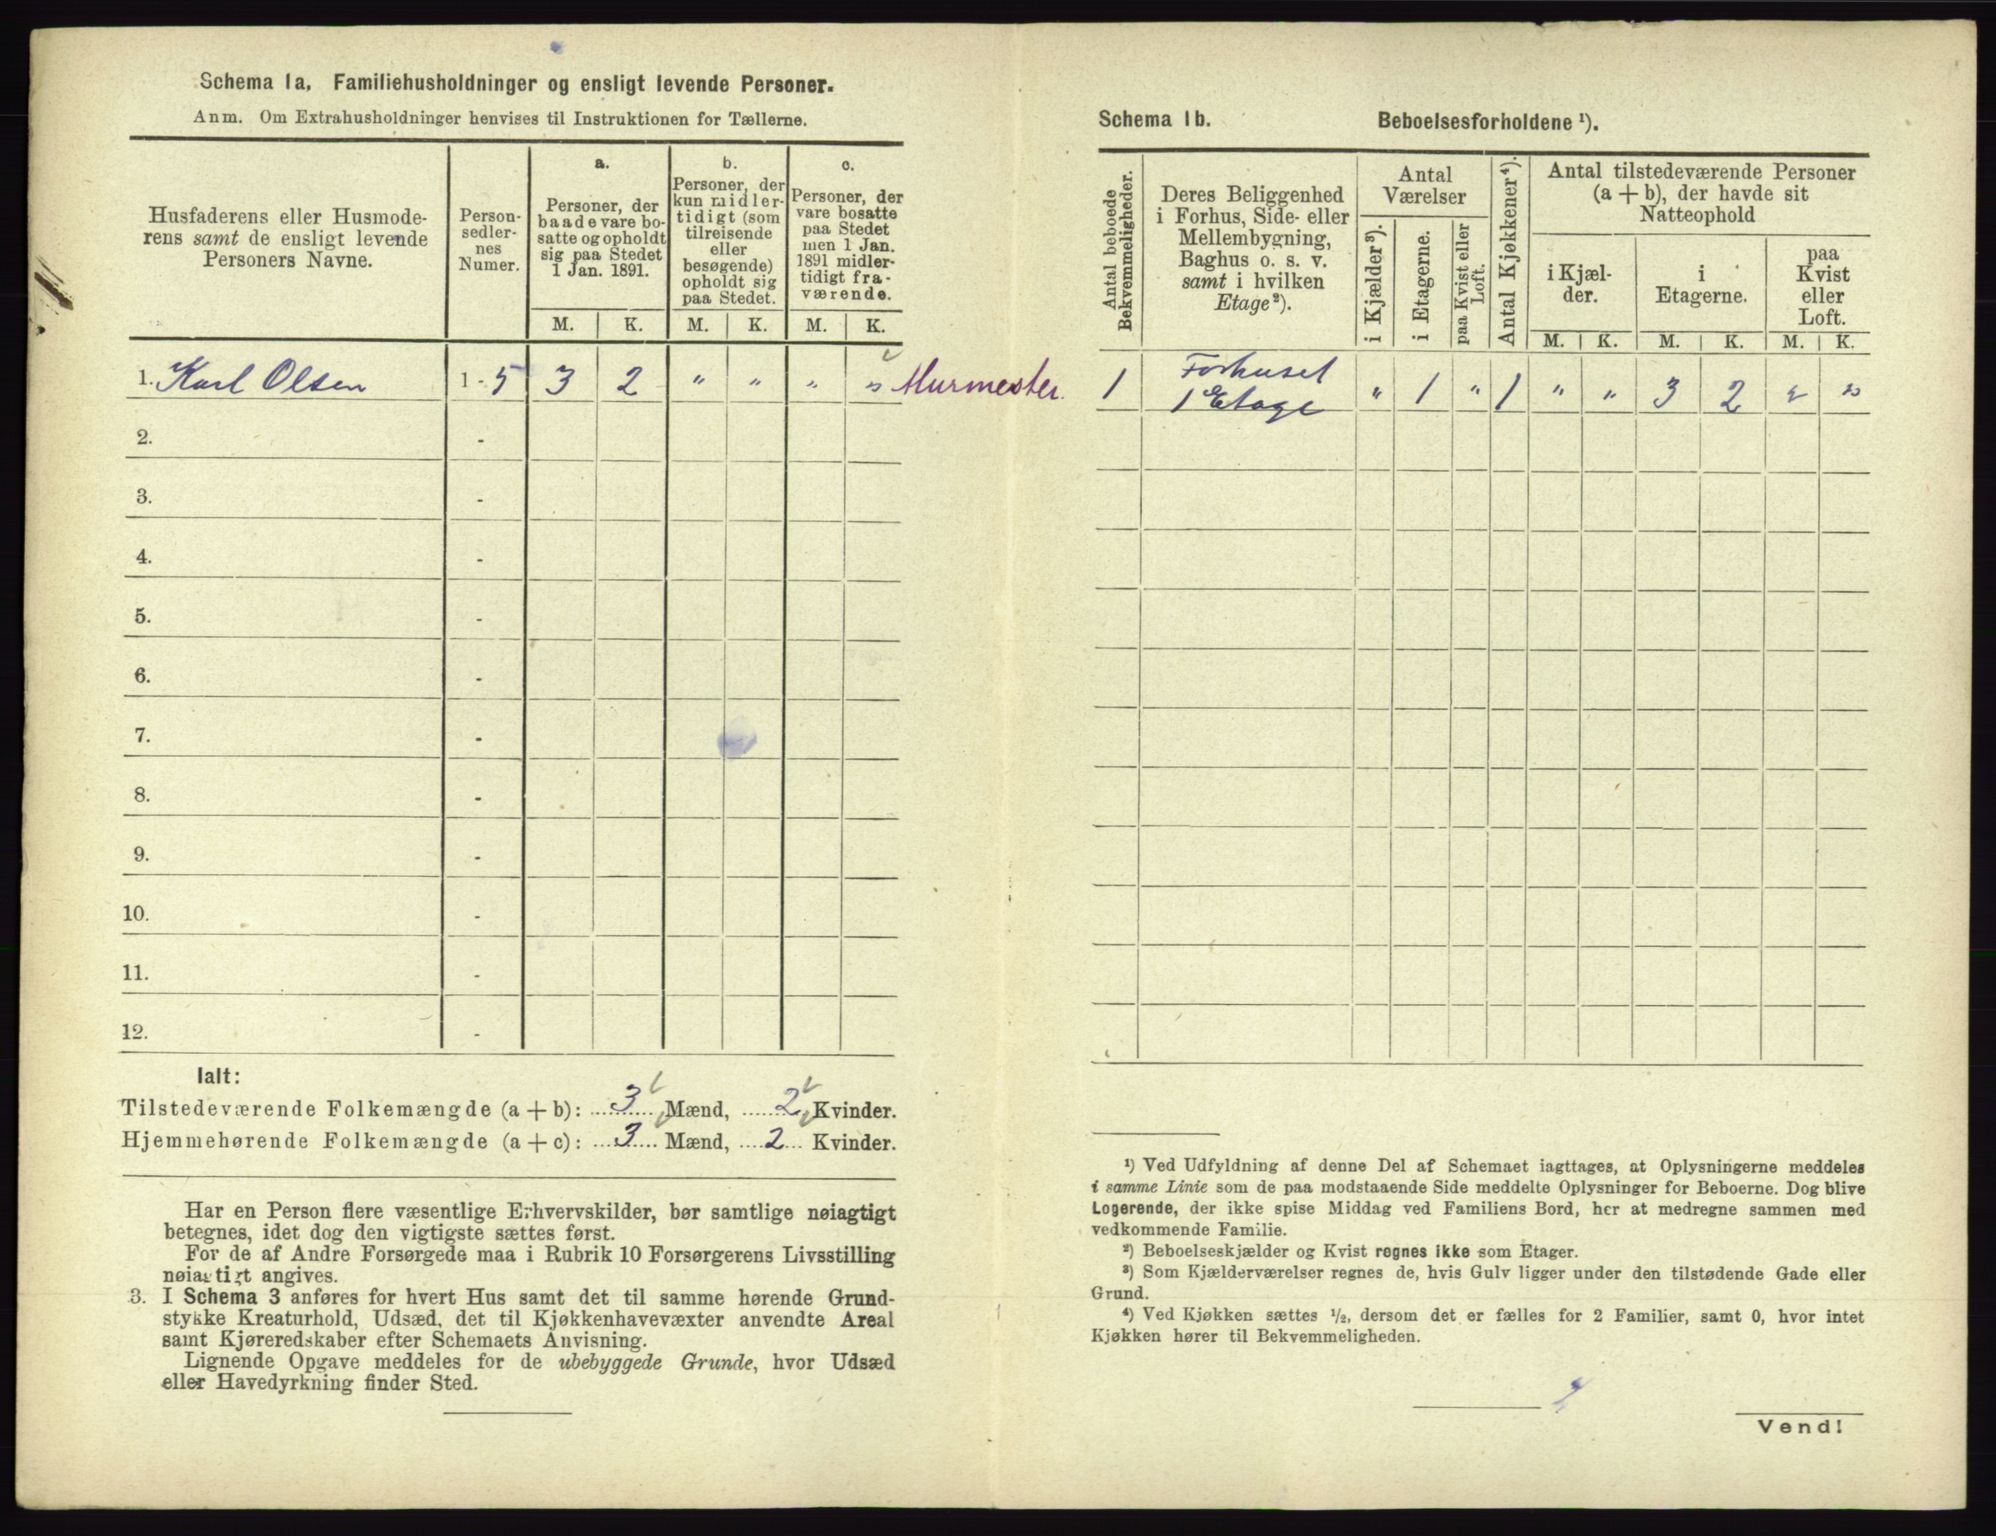 Schema 1a. Familiehusholdninger og ensligt levende Personer.
Anm. Om Extrahusholdninger henvises til Instruktionen for Tællerne.
Husfaderens eller Husmode-
rens samt de ensligt levende
Personers Navne.
Person-
sedler-
nes
Numer.
a.
Personer, der
baade vare bo-
satte og opholdt
sig paa Stedet
1 Jan. 1891.
b.
Personer, der
kun midler-
tidigt (som
tilreisende
eller
besøgende)
opholdt sig
paa Stedet.
c.
Personer, der
vare bosatte
paa Stedet
men 1 Jan.
1891 midler-
tidigt fra-
værende.
M. K. M. K. M. K.
1. Karl Olsen 1 - 5 3 2 " " " " Murmester.
2. -
3. -
4. -
5. -
6. -
7. -
8. -
9. -
10. -
11. -
12. -
Ialt:
Tilstedeværende Folkemængde (a + b): 3 Mænd, 2 Kvinder.
Hjemmehørende Folkemængde (a + c): 3 Mænd, 2 Kvinder.
Har en Person flere væsentlige Erhvervskilder, bør samtlige nøiagtigt
betegnes, idet dog den vigtigste sættes først.
For de af Andre Forsørgede maa i Rubrik 10 Forsørgerens Livsstilling
nøiagtigt angives.
3. I Schema 3 anføres for hvert Hus samt det til samme hørende Grund-
stykke Kreaturhold, Udsæd, det til Kjøkkenhavevæxter anvendte Areal
samt Kjøreredskaber efter Schemaets Anvisning.
Lignende Opgave meddeles for de ubebyggede Grunde, hvor Udsæd
eller Havedyrkning finder Sted.
Schema 1b. Beboelsesforholdene ¹).
Antal beboede
Bekvemmeligheder.
Deres Beliggenhed
i Forhus, Side- eller
Mellembygning,
Baghus o. s. v.
samt i hvilken
Etage²).
Antal
Værelser
i Kjælder³).
i Etagerne.
paa Kvist eller
Loft.
Antal Kjøkkener⁴).
Antal tilstedeværende Personer
(a + b), der havde sit
Natteophold
i Kjæl-
der.
i
Etagerne.
paa
Kvist
eller
Loft.
M. K. M. K. M. K.
1 Forhuset
1 Etage " 1 " 1 " " 3 2 " "
¹) Ved Udfyldning af denne Del af Schemaet iagttages, at Oplysningerne meddeles
i samme Linie som de paa modstaaende Side meddelte Oplysninger for Beboerne. Dog blive
Logerende, der ikke spise Middag ved Familiens Bord, her at medregne sammen med
vedkommende Familie.
²) Beboelseskjælder og Kvist regnes ikke som Etager.
³) Som Kjælderværelser regnes de, hvis Gulv ligger under den tilstødende Gade eller
Grund.
⁴) Ved Kjøkken sættes ½, dersom det er fælles for 2 Familier, samt 0, hvor intet
Kjøkken hører til Bekvemmeligheden.
Vend!